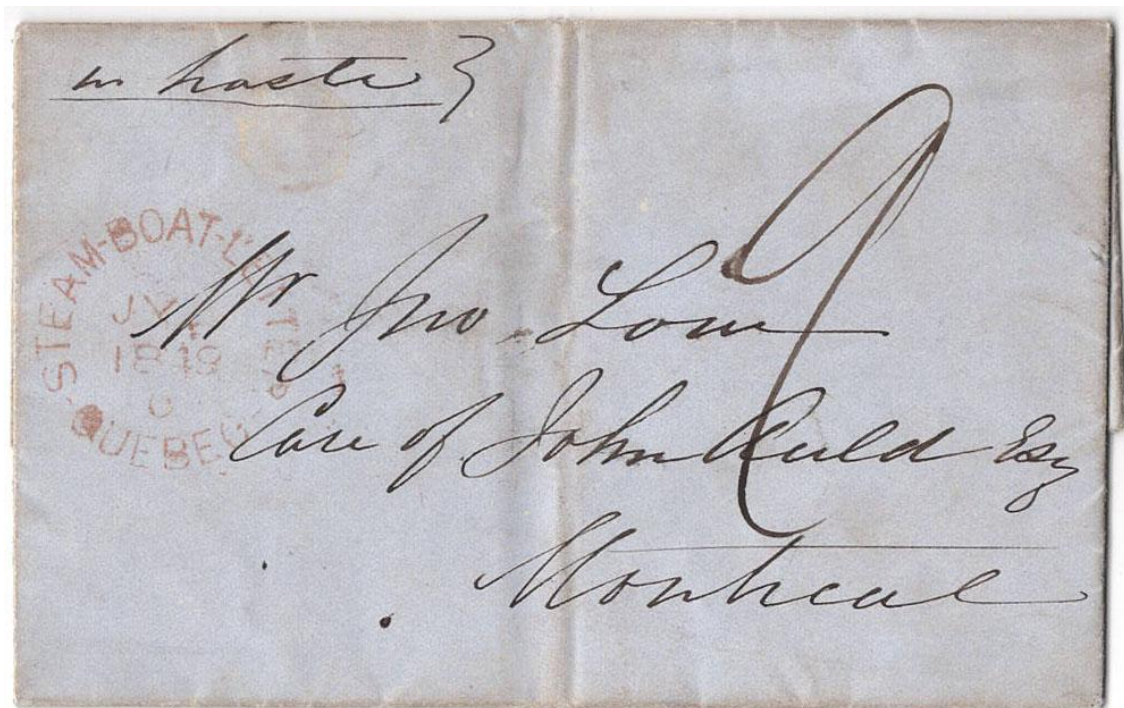 in haste
STEAM-BOAT-LETTER
JY
QUEBEC
9
Mr Jno Low
Care of John Auld Esq
Montreal